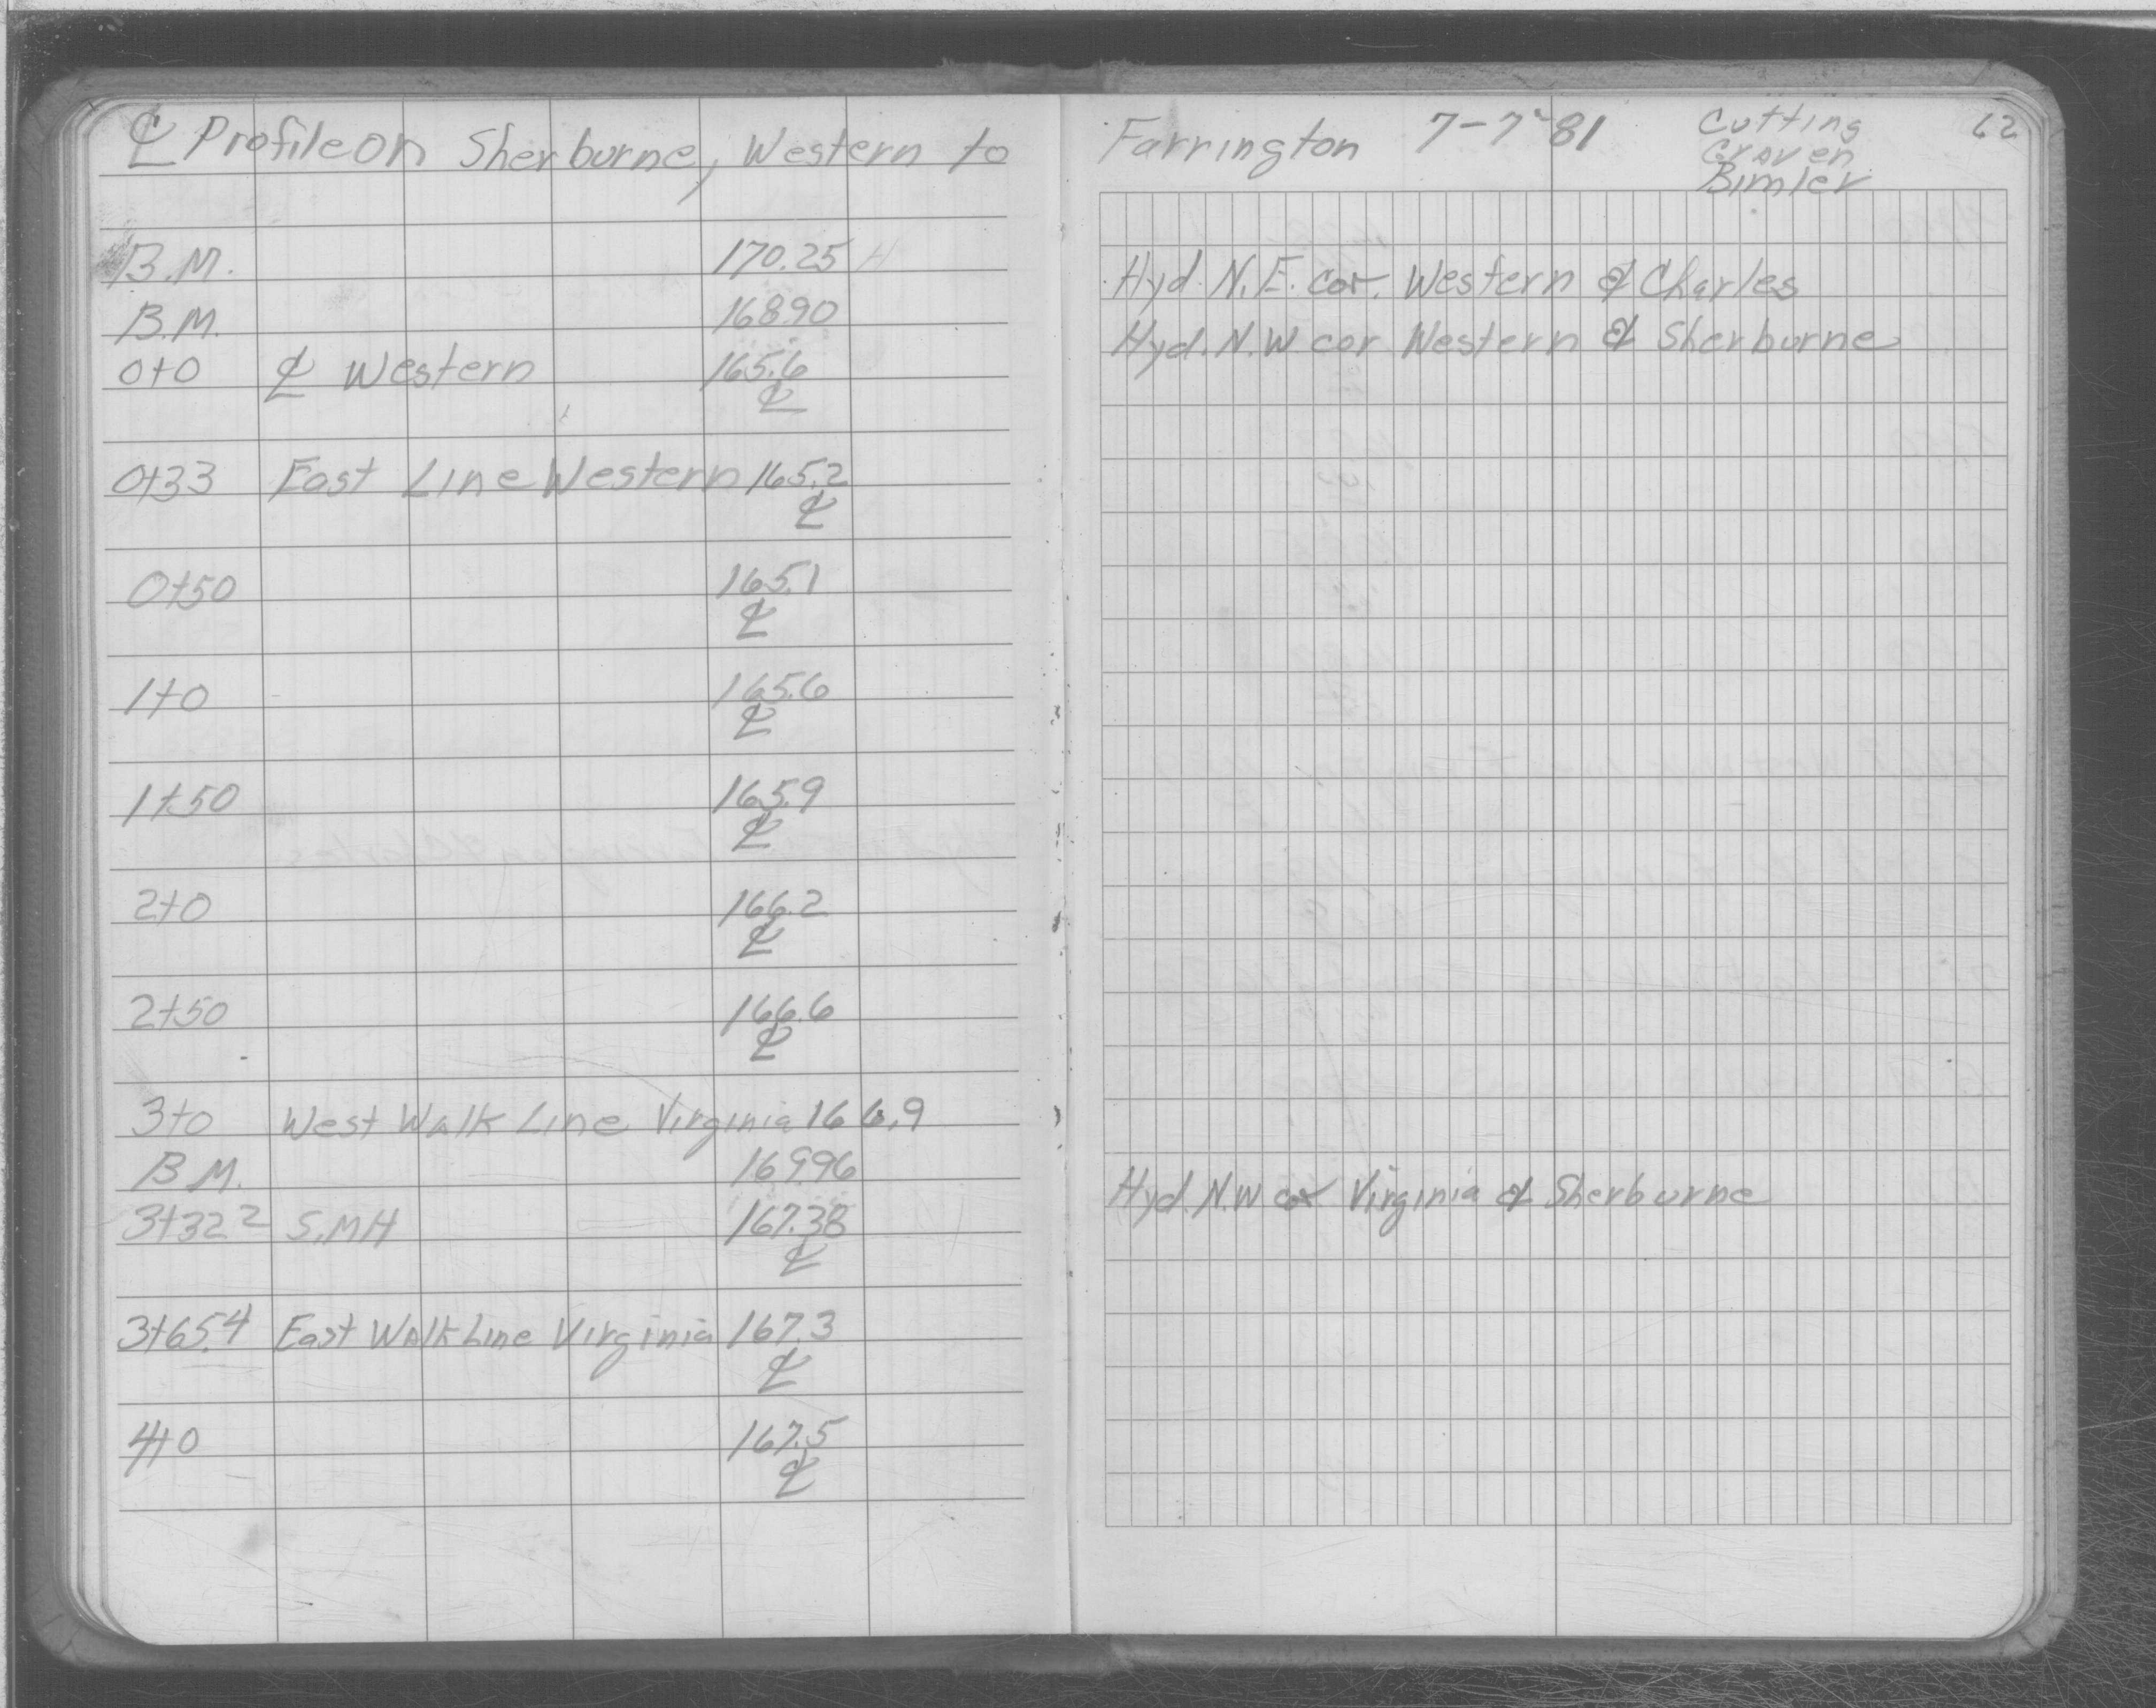 ℄ Profile on Sherburne, Western to Farrington 7-7-81 Cutting 62
Craven
Bimler
B.M. 170.25 Hyd. N.E. cor. Western & Charles
B.M. 168.90 Hyd. N.W cor Western & Sherburne
0+0 ℄ Western 165.6
℄
0+33 East Line Western 165.2
℄
0+50 165.1
℄
1+0 165.6
℄
1+50 165.9
℄
2+0 166.2
℄
2+50 166.6
℄
3+0 West Walk Line Virginia 166.9
B.M. 169.96 Hyd. N.W cor Virginia & Sherburne
3+32.2 S.MH 167.38
℄
3+65.4 East Walk Line Virginia 167.3
℄
4+0 167.5
℄